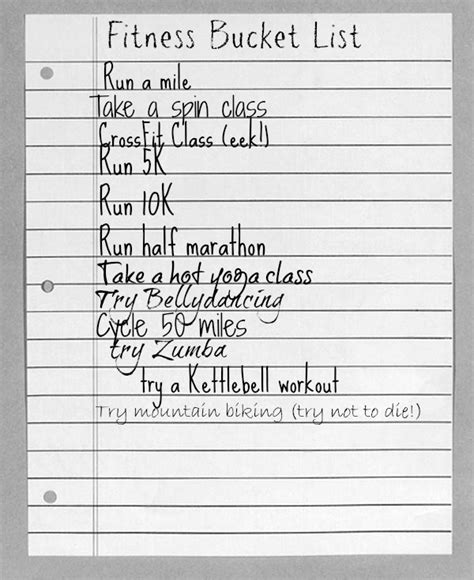 Fitness Bucket List
Run a mile
Take a spin class
CrossFit Class (eek!)
Run 5K
Run 10K
Run half marathon
Take a hot yoga class
Try Bellydancing
Cycle 50 miles
try Zumba
try a Kettlebell workout
Try mountain biking (try not to die!)